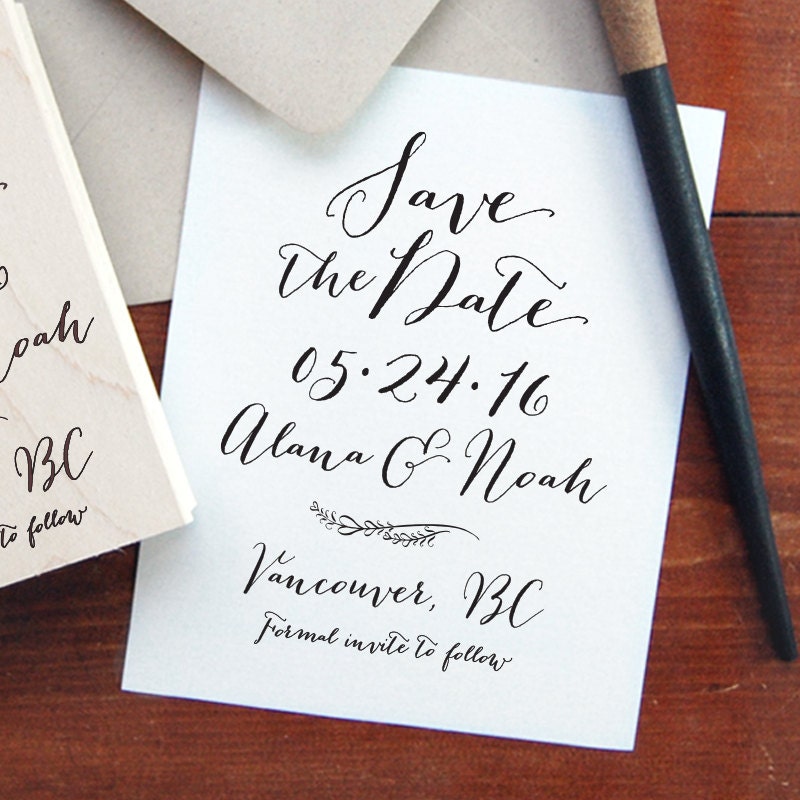 Save
the Date
05·24·16
Alana & Noah
Vancouver, BC
Formal invite to follow
oah
BC
to follow